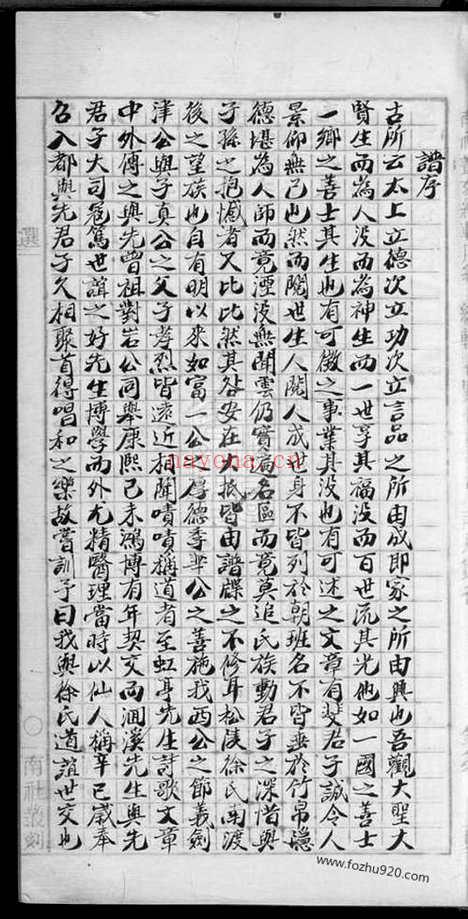 譜序
古所云太上立德次立功次立言品之所由成即家之所由興也吾觀大聖大
賢生而為人没而為神生而一世享其福没而百世流其光他如一國之善士
一鄉之善士其生也有可徵之事業其没也有可述之文章有斐君子誠令人
景仰無已也然而閱世生人閱人成世身不皆列於朝班名不皆垂於竹帛隱
德堪為人師而竟湮没無聞雲仍實
名區而竟莫追氏族動君子之深惜與
子孫之抱憾者又比比然其咎安在大抵皆由譜牒之不修耳松陵徐氏南渡
後之望族也自有明以來如富一公之厚德季
公之善施我西公之節義劍
津公與子真公之父子孝烈皆遠近相聞嘖嘖稱道者至虹亭先生詩歌文章
中外傳之與先曾祖對岩公同舉康熙己未鴻博有年契交而洄溪先生與先
君子大司寇篤世誼之好先生博學而外尤精醫理當時以仙人稱辛巳歲奉
召入都與先君子久相聚首得唱和之樂故嘗訓予曰我與徐氏道誼世交也
南社叢刻
nayona.cn
www.fozhu920.com